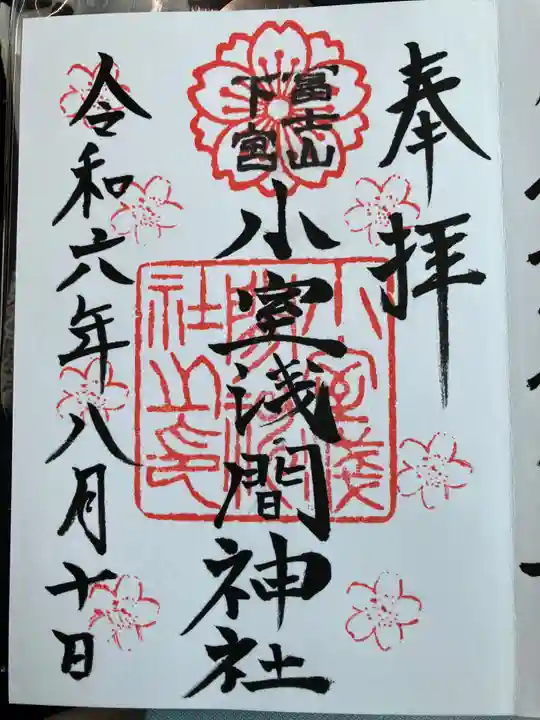 奉拝
富士山
下宮
小室浅間神社
小室浅
間神
社之印
令和六年八月十日